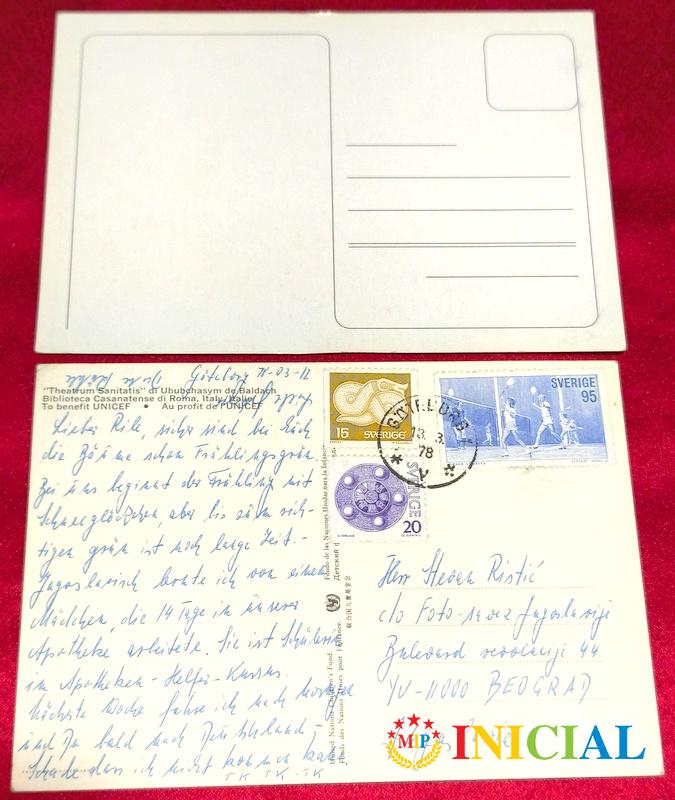 "Theatrum Sanitatis" di Ububchasym de Baldach
Biblioteca Casanatense di Roma, Italy/Italie
To benefit UNICEF • Au profit de l'UNICEF
Göteborg
Lieber sicher sind bei Euch
die Bäume schon Frühlingsgrün.
Bei uns beginnt der Frühling mit
Schneeglöckchen, aber bis zum rich-
tigen grün ist noch lange Zeit.-
Jugoslavisch lernte ich von einem
Mädchen, die 14 Tage in unserer
Apotheke arbeitete. Sie ist Schülerin
im Apotheken-Helfer-Kursus.
Nächste Woche fahre ich nach
und Du bald nach Deutschland-
Schade dass ich nicht kommen kann
TK. TK. TK
15 SVERIGE
SVERIGE
95
SVERIGE
20
GÖTEBORG
13. 3.
78
Fonds de las Naciones Unidas para la Infancia
Детский ф
联合国儿童基金会
United Nations Children's Fund
Fonds des Nations Unies pour l'Enfance
Herr Stevan Ristić
c/o Foto-savez Jugoslavije
Bulevard revolucije 44
YU-11000 BEOGRAD
MIP INICIAL